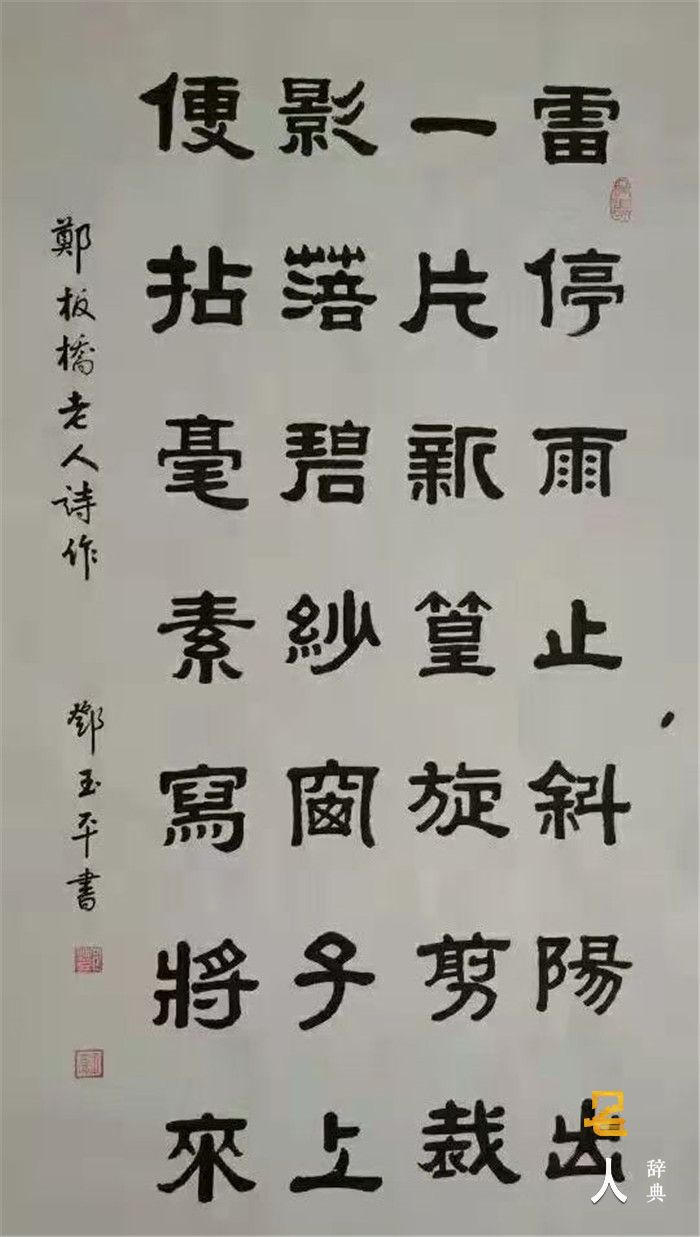 雷停雨止斜陽出
一片新篁旋剪裁
影落碧紗窗子上
便拈毫素寫將來
鄭板橋老人詩作
鄧玉平書
名人
辞典